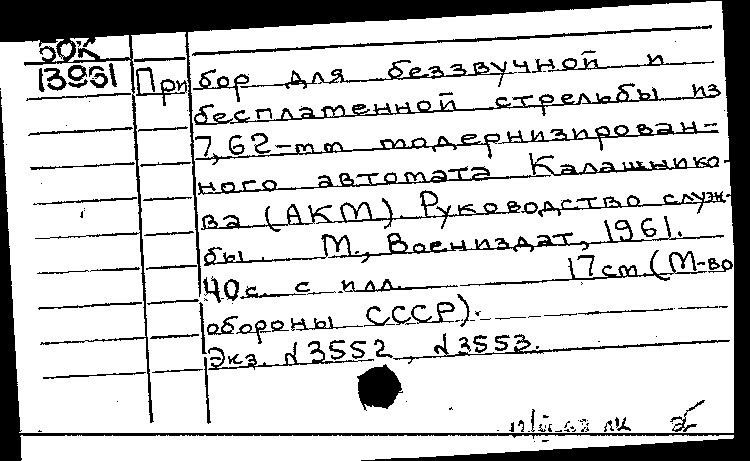 50К
13961 Прибор для беззвучной и
бесплатенной стрельбы из
7,62-мм модернизирован-
ного автомата Калашнико-
ва (АКМ). Руководство служ-
бы. М., Воениздат, 1961.
40с. с илл. 17см. (М-во
обороны СССР).
Экз. №3552, №3553.